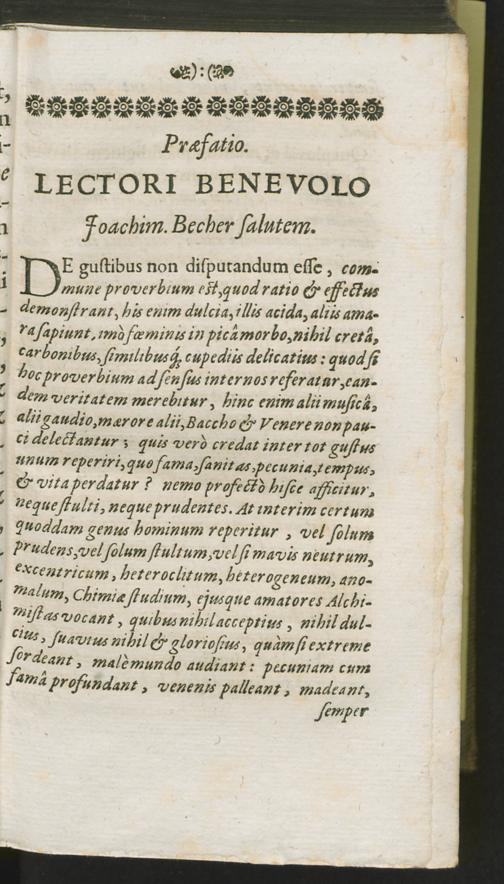 ):(
Præfatio.
LECTORI BENEVOLO
Joachim. Becher ſalutem.
DE guſtibus non diſputandum eſſe, com-
mune proverbium eſt, quod ratio & effectus
demonſtrant, his enim dulcia, illis acida, aliis ama-
ra ſapiunt, imò fœminis in picâ morbo, nihil cretâ,
carbonibus, ſimilibusq́; cupediis delicatius: quod ſi
hoc proverbium ad ſenſus internos referatur, ean-
dem veritatem merebitur, hinc enim alii muſicâ,
alii gaudio, mærore alii, Baccho & Venere non pau-
ci delectantur; quis verò credat inter tot guſtus
unum reperiri, quo fama, ſanitas, pecunia, tempus,
& vita perdatur? nemo profectò hiſce afficitur,
neque ſtulti, neque prudentes. At interim certum
quoddam genus hominum reperitur, vel ſolum
prudens, vel ſolum ſtultum, vel ſi mavis neutrum,
excentricum, heteroclitum, heterogeneum, ano-
malum, Chimiæ ſtudium, ejusque amatores Alchi-
miſtas vocant, quibus nihil acceptius, nihil dul-
cius, ſuavius nihil & glorioſius, quàm ſi extreme
ſordeant, malè mundo audiant: pecuniam cum
famâ profundant, venenis palleant, madeant,
ſemper